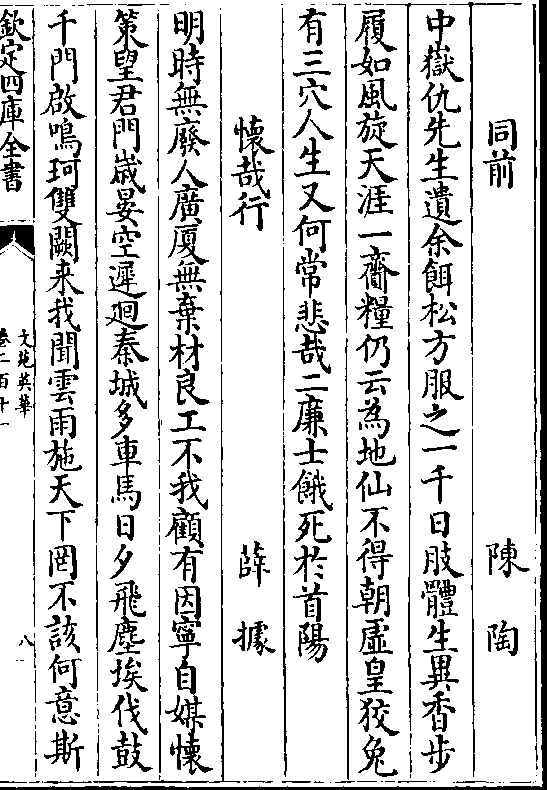 同前　陳陶
中嶽仇先生遺余餌松方服之一千日肢體生異香步
履如風旋天涯一齋糧仍云為地仙不得朝虛皇狡兔
有三穴人生又何常悲哉二廉士餓死於首陽
懷哉行　薛據
明時無廢人廣厦無棄材良工不我顧有因寧自媒懷
策望君門嵗晏空遲迴秦城多車馬日夕飛塵埃伐鼓
千門啟鳴珂雙闕来我聞雲雨施天下罔不該何意斯
欽定四庫全書
文苑英華
卷二百十一
八